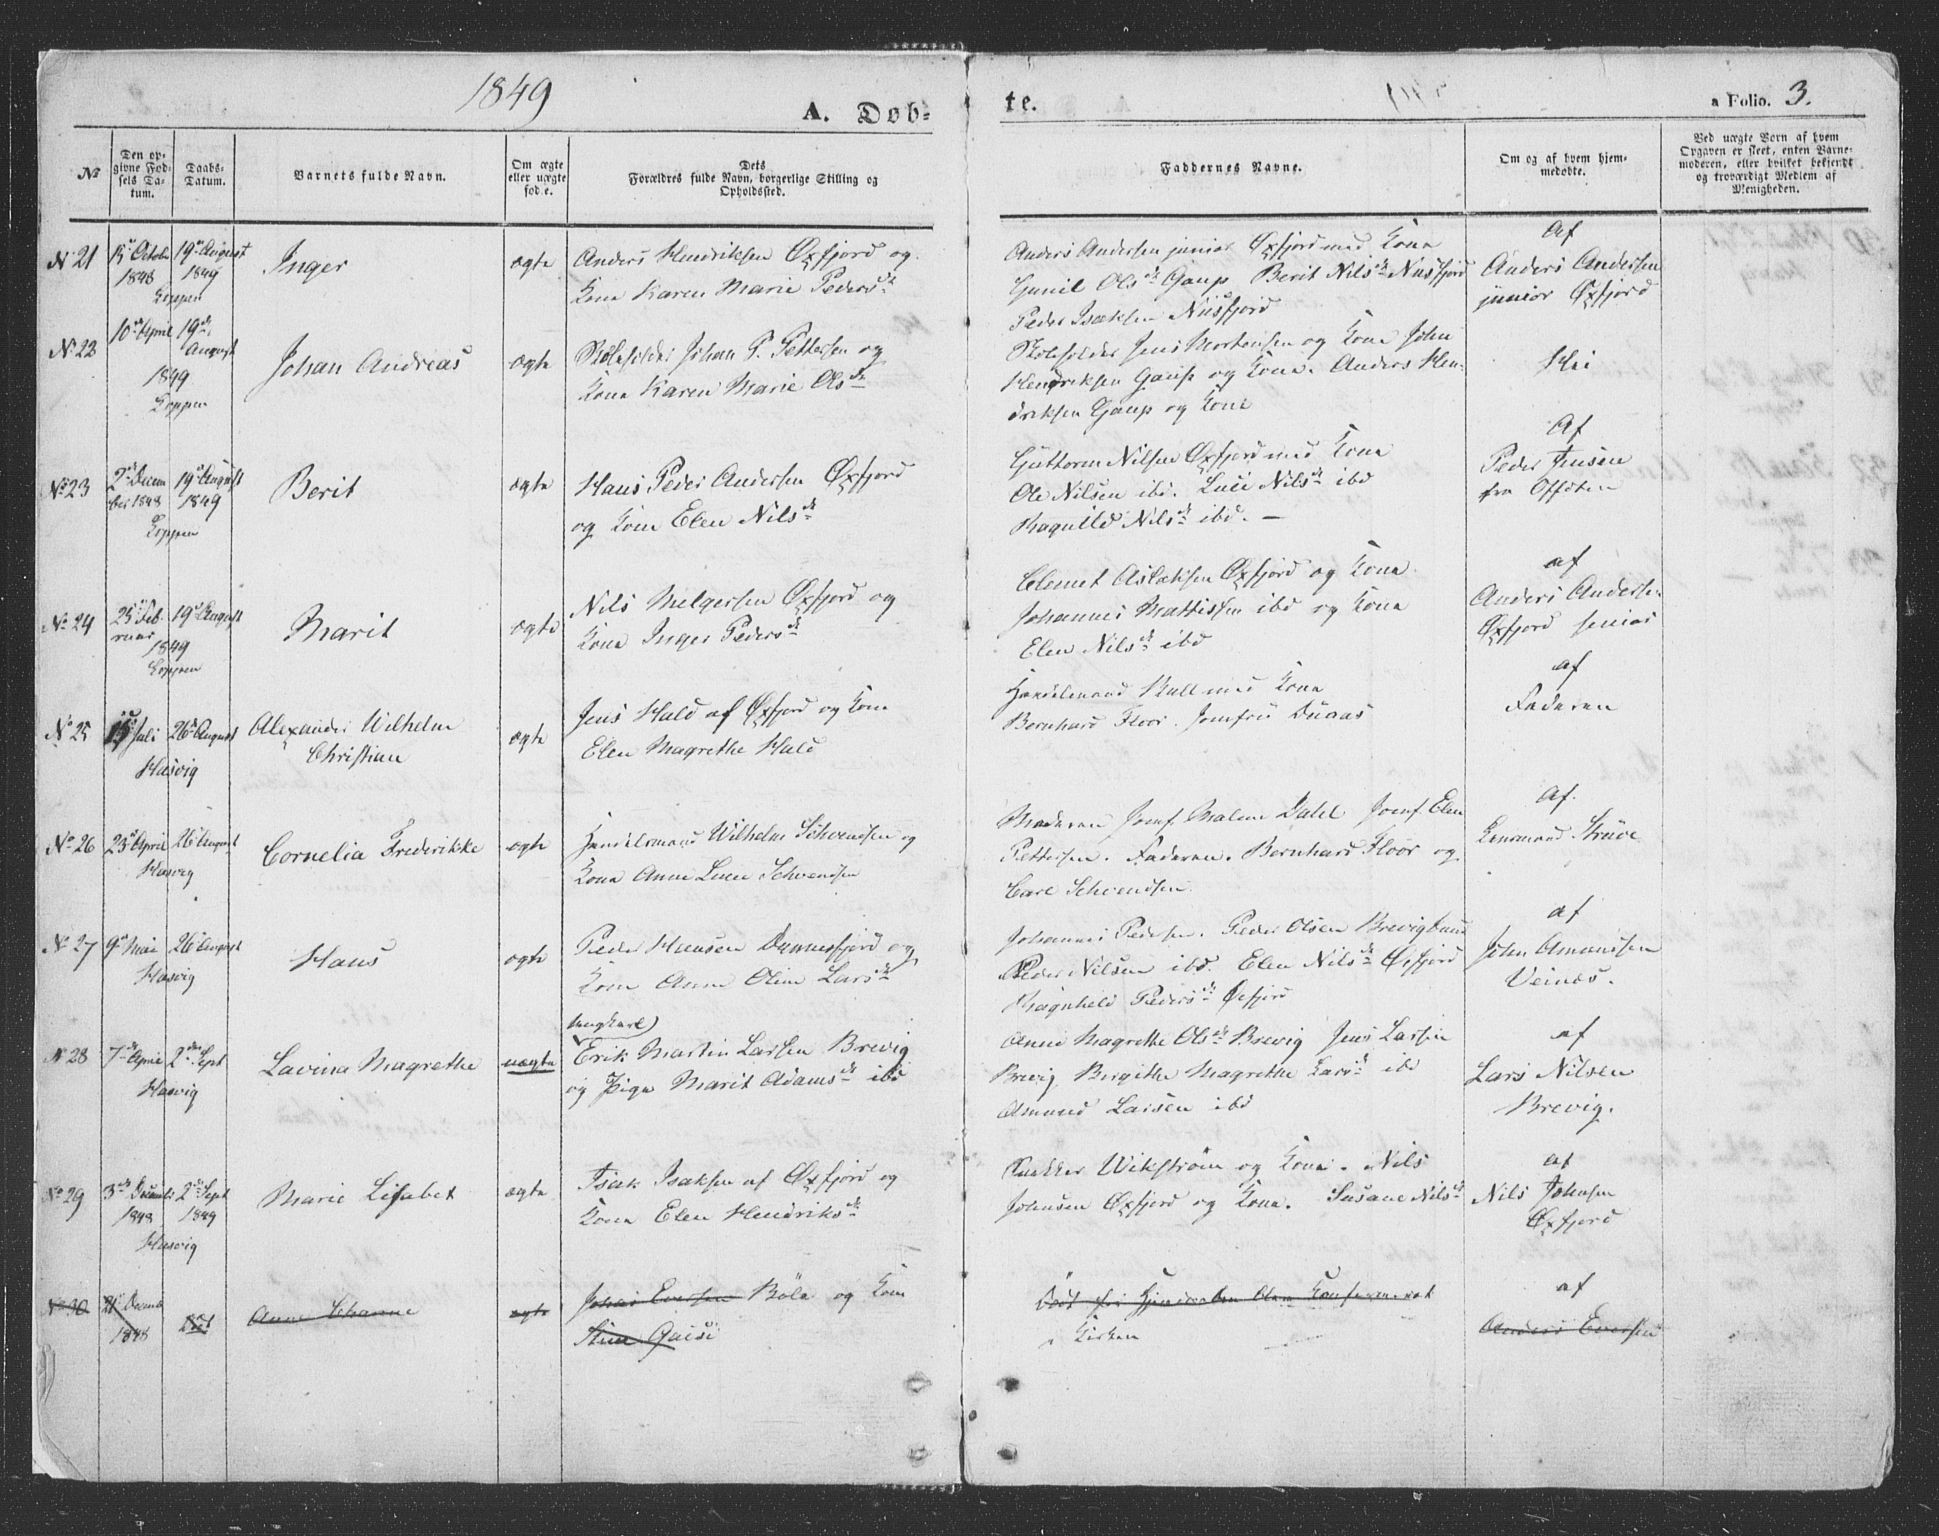 1849
A. Dob-
te.
a Folio. 3.
No
Den op-
givne Fød-
sels Da-
tum.
Daabs-
Datum.
Barnets fulde Navn.
Om ægte
eller uægte
fød.e.
Dets
Forældres fulde Navn, borgerlige Stilling og
Opholdssted.
Faddernes Navne.
Om og af hvem hjem-
medøbte.
Ved uægte Børn af hvem
Opgaven er skeet, enten Barne-
moderen, eller hvilket bekjendt
og troværdigt Medlem af
Menigheden.
No 21
15de Octobr
1848
19de August
1849
Loppen
Inger
ægte
Anders Hendriksen Øxfjord og
Kone Karen Marie Pedersdt
Anders Andersen junior Øxfjord med Kone
Gunil Olsdt Gaup Berit Nilsdt Nusfjord
Peder Isaksen Nusfjord
Af
Anders Andersen
junior Øxfjord
No 22
10de April
1849
19de
August
Loppen
Johan Andreas
ægte
Skoleholder Johan P. Pettersen og
Kone Karen Marie Olsdt
Skoleholder Jens Mortensen og Kone John
Hendriksen Gaup og Kone. Anders Hen-
driksen Gaup og Kone
Nei
No 23
2de Decem
ber 1848
19de August
1849
Loppen
Berit
ægte
Hans Peder Andersen Øxfjord
og Kone Elen Nilsdt
Guttorm Nilsen Øxfjord med Kone
Ole Nilsen ibd. Luci Nilsdt ibd
Magnild Nilsdt ibd. —
Af
Peder Jensen
fra Offoten
No 24
25de Feb-
ruar
1849
19de August
Loppen
Marit
ægte
Nils Melgersen Øxfjord og
Kone Inger Pedersdt
Clemet Aslaksen Øxfjord og Kone
Johannes Mattissen ibd og Kone
Elen Nilsdt ibd
af
Anders Anderse-
Øxfjord senior
No 25
Juli
26de August
Hasvig
Alexander Wilhelm
Christian
ægte
Jens Hald af Øxfjord og Kone
Elen Magrethe Hald
Handelsmand Kull med Kone
Bernhard Floor. Jomfru Duaas
af
Faderen
No 26
23de April
26de August
Hasvig
Cornelia Frederikke
ægte
Handelsmand Wilhelm Schvendsen og
Kone Anne Lucie Schvendsen
Moderen Jomf Malene Dahl Jomf Elen
Pettersen. Faderen. Bernhard Floor og
Carl Schvendsen
Af.
Lensmand Strüve
No 27
9de Mai
26de August
Hasvig
Hans
ægte
Peder Hansen Dønnesfjord og
Kone Anne Oline Larsdt
Johannes Pedersen. Peder Olsen Brevigbund
Peder Nilsen ibd. Elen Nilsdt Øxfjord
Magnhild Pedersdt Øxfjord
af
John Amundsen
Veines.
No 28
7de April
2den Sept
Hasvig
Lavina Magrethe
uægte
Ungkarl
Erik Martin Larsen Brevig
og Pige Marit Adamsdt ibd
Anne Magrethe Olsdt Brevig Jens Larsen
Brevig Birgithe Magrethe Larsdt ibd
Amund Larsen ibd
af
Lars Nilsen
Brevig.
No 29
3de Decemb:
1848
2de Sept
1849
Hasvig
Marie Lisabet
ægte
Isak Isaksen af Øxfjord og
Kone Elen Hendriksdt
Snekker Wikström og Kone. Nils
Johnsen Øxfjord og Kone. Susane Nilsdt
af
Nils Johnsen
Øxfjord
No 30
21de Decemb
1848
Død
Anne Johanne
ægte
Johan Eversen Böle og Kone
Stine Gaisi
Død før Hjemmedaaben blev Konfirmeret
i Kirken
af
Anders Eversen